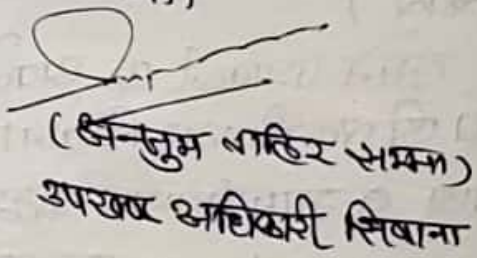 (अन्जुम ताहिर सम्मा)
उपखण्ड अधिकारी सिवाना